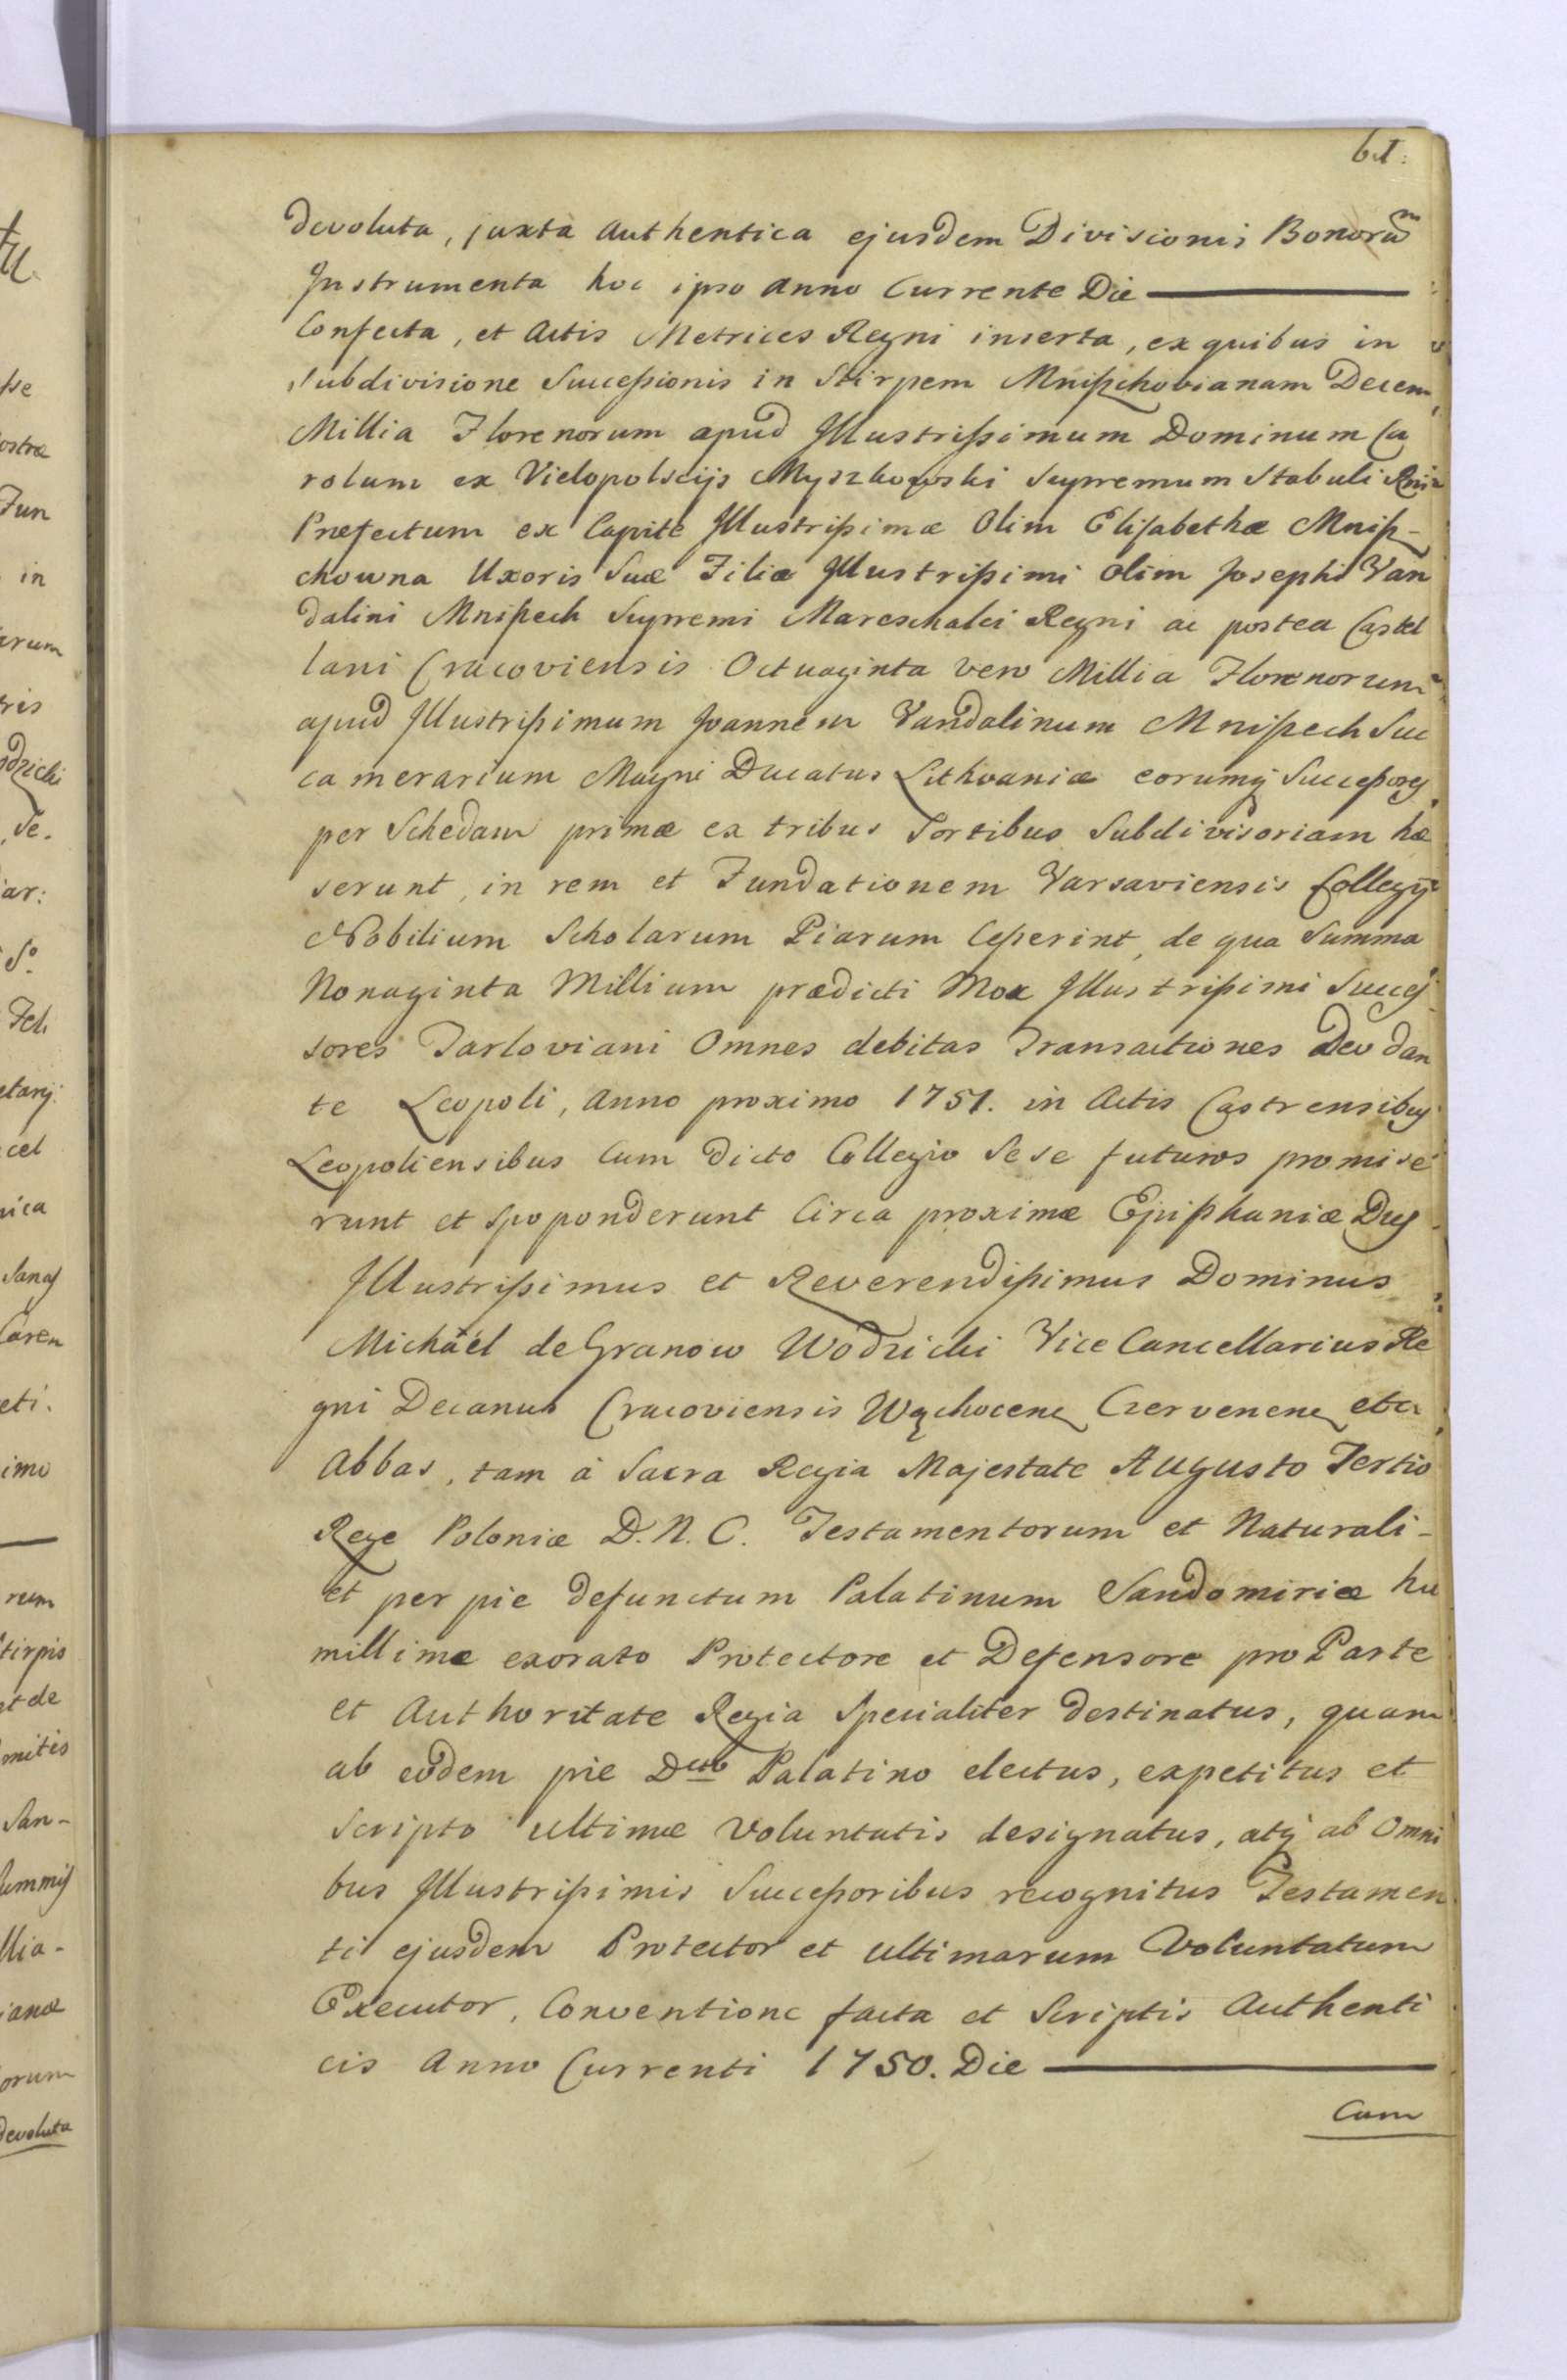 61.
devoluta, juxta authentica ejusdem Divisionis Bonorum
Instrumenta hoc ipso anno Currente Die ———
Confecta, et Actis Metrices Regni inserta, ex quibus in
subdivisione Successionis in Stirpem Mnischovianam Decem
Millia Florenorum apud Illustrissimum Dominum Ca
rolum ex Vielopolscijs Myszkowski Supremum Stabuli Rni
Præfectum ex Capite Illustrissimæ Olim Elisabethæ Mnisz-
chowna Uxoris Suæ Filiæ Illustrissimi olim Josephi Van
dalini Mniszech Supremi Mareschalci Regni ac postea Castel
lani Cracoviensis Octuaginta vero Millia Florenorum
apud Illustrissimum Joannem Vandalinum Mniszech Suc
camerarium Magni Ducatus Lithvaniæ eorumq Successores
per Schedam primæ ex tribus Sortibus Subdivisoriam hæ
serunt, in rem et Fundationem Varsaviensis Collegij
Nobilium Scholarum Piarum Cesserint, de qua Summa
Nonaginta Millium prædicti Mox Illustrissimi Succes
sores Tarloviani Omnes debitas Transactiones Deo dan
te Leopoli, anno proximo 1751. in Actis Castrensibus
Leopoliensibus Cum dicto Collegio Sese futuros promise
runt et spoponderunt Circa proximæ Epiphaniæ Dies
Illustrissimus et Reverendissimus Dominus
Michaël de Granow Wodzicki Vice Cancellarius Re
gni Decanus Cracoviensis Wąchocen Czervenen etc
Abbas, tam à Sacra Regia Majestate Augusto Tertio
Rege Poloniæ D. N. C. Testamentorum et Naturali-
et per pie defunctum Palatinum Sandomiriæ hu
millime exorato Protectore et Defensore pro Parte
et Authoritate Regia specialiter destinatus, quam
ab eodem pie Dcto Palatino electus, expetitus et
scripto ultimæ voluntatis designatus, atq ab Omni
bus Illustrissimis Successoribus recognitus Testamen
ti ejusdem Protector et ultimarum Voluntatum
Executor, Conventione facta et Scriptis Authenti
cis Anno Currenti 1750. Die ———
Cum